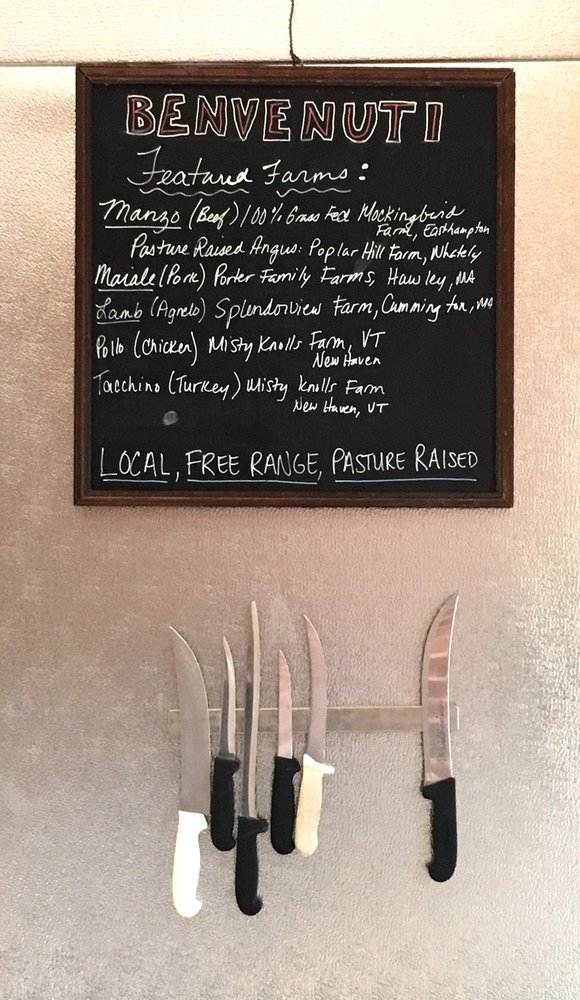 BENVENUTI
Featured Farms:
Manzo (Beef) 100% Grass Fed Mockingbird
Farm, Easthampton
Pasture Raised Angus: Poplar Hill Farm, Whately
Maiale (Pork) Porter Family Farms, Hawley, MA
Lamb (Agnelo) Splendorview Farm, Cummington, MA
Pollo (Chicken) Misty Knolls Farm, VT
New Haven
Tacchino (Turkey) Misty Knolls Farm
New Haven, VT
LOCAL, FREE RANGE, PASTURE RAISED